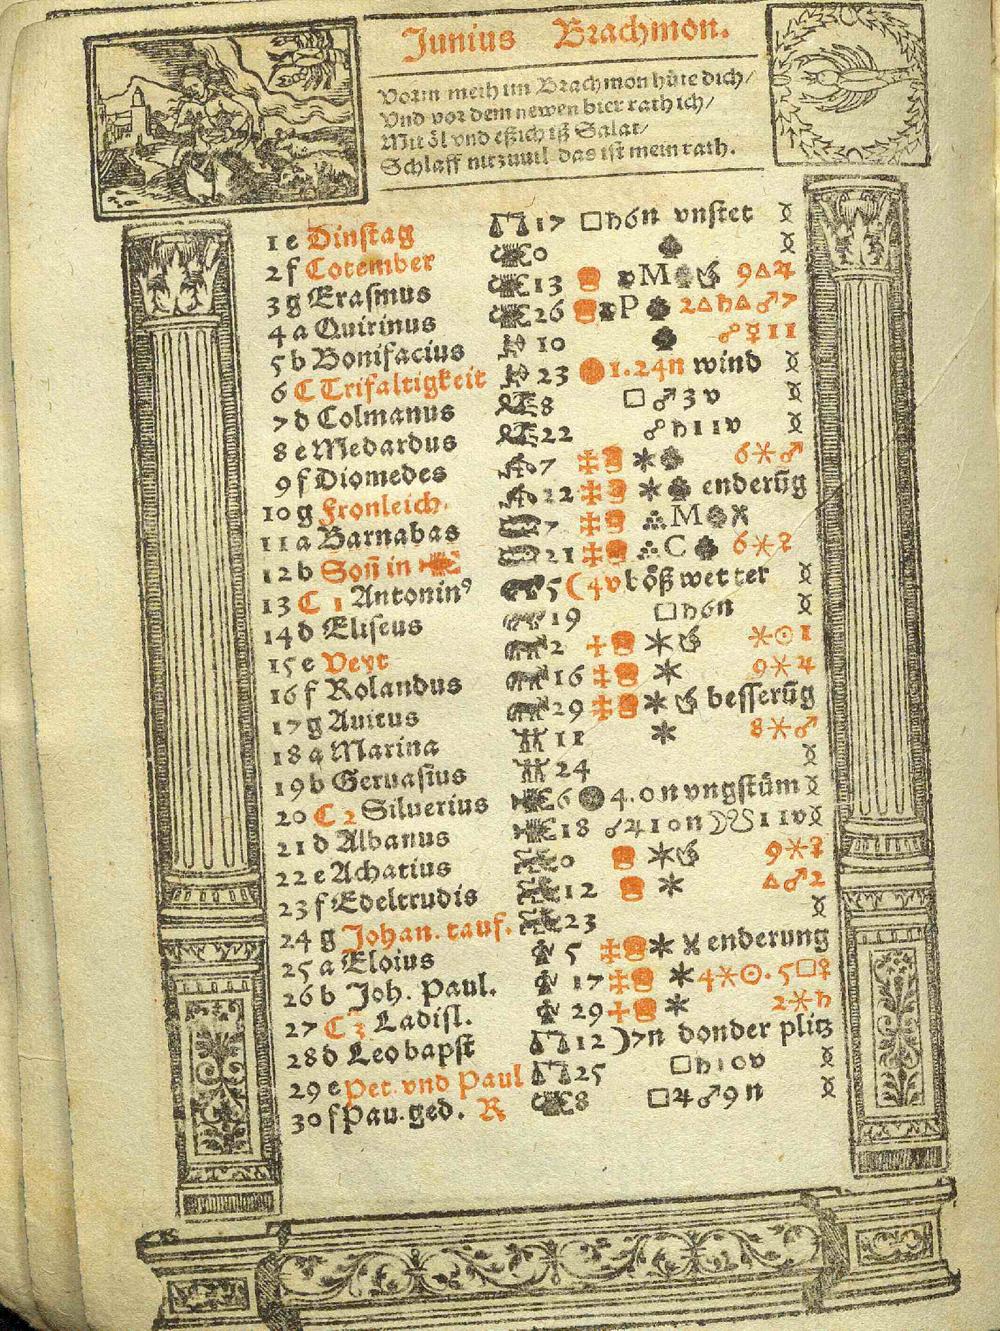 Junius Brachmon.
Vorm meth im Brachmon hüte dich/
Vnd vor dem newen bier rath ich/
Mit öl vnd eßich iß Salat/
Schlaff nit zuuil das ist mein rath.
1 e Dinstag 17 □♄6n vnstet
2 f Cotember 0
3 g Erasmus 13 M 9△♃
4 a Quirinus 26 P 2△♄△♂7
5 b Bonifacius 10 ☍☿11
6 C Trifaltigkeit 23 1.24n wind
7 d Colmanus 8 □♂3v
8 e Medardus 22 ☍♄11v
9 f Diomedes 7 6⚹♂
10 g Fronleich. 22 enderūg
11 a Barnabas 7 M
12 b Soñ in ♋ 21 C 6⚹☿
13 C 1 Antonin⁹ 5 ☾4v böß wetter
14 d Eliseus 19 □♄6n
15 e Veyt 2 ⚹☉1
16 f Rolandus 16 9⚹♃
17 g Auitus 29 besserūg
18 a Marina 11 8⚹♂
19 b Geruasius 24
20 C 2 Siluerius 6 4.0n vngstüm
21 d Albanus 18 ☌♃10n 11v
22 e Achatius 0 9⚹☿
23 f Edeltrudis 12 △♂2
24 g Johan. tauf. 23
25 a Eloius 5 enderung
26 b Joh. Paul. 17 4⚹☉.5□♀
27 C 3 Ladisl. 29 2⚹♄
28 d Leo bapst 12 ☽7n donder plitz
29 e Pet. vnd Paul 25 □♄10v
30 f Pau. ged. R 8 □♃♂9n